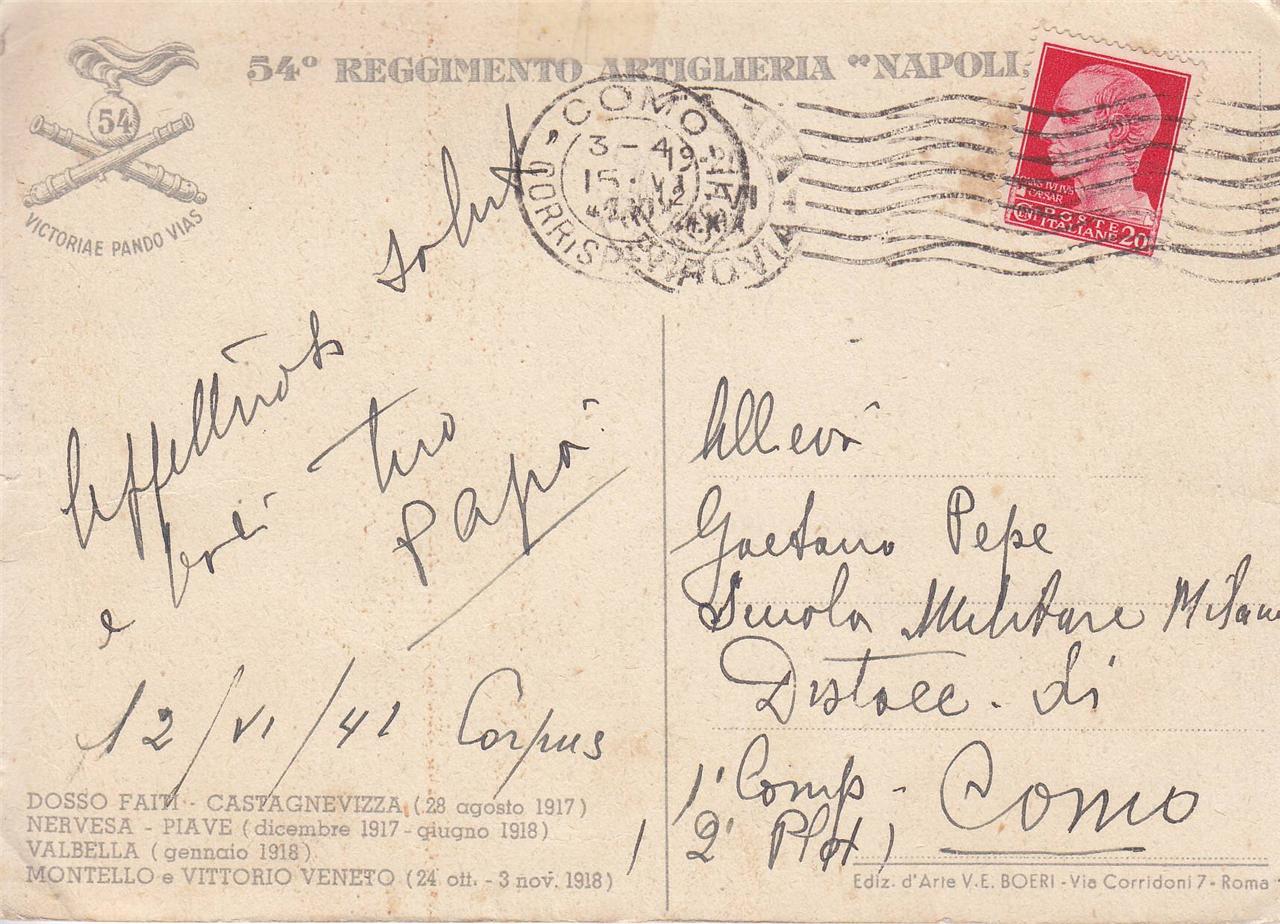 54° REGGIMENTO ARTIGLIERIA "NAPOLI"
54
VICTORIAE PANDO VIAS
COMO
3 - 4
15 VI
CORRISP
FERROVIA
DIVUS IVLIVS
CAESAR
POSTE
ITALIANE 20
Affettuosi saluti
e baci tuo
Papà
12/VI/42 Corpus
Allievo
Gaetano Pepe
Scuola Militare Milano
Distacc. di
1ª Comp - Como
2° Plot
DOSSO FAITI - CASTAGNEVIZZA (28 agosto 1917)
NERVESA - PIAVE (dicembre 1917 - giugno 1918)
VALBELLA (gennaio 1918)
MONTELLO e VITTORIO VENETO (24 ott. - 3 nov. 1918)
Ediz. d'Arte V. E. BOERI - Via Corridoni 7 - Roma